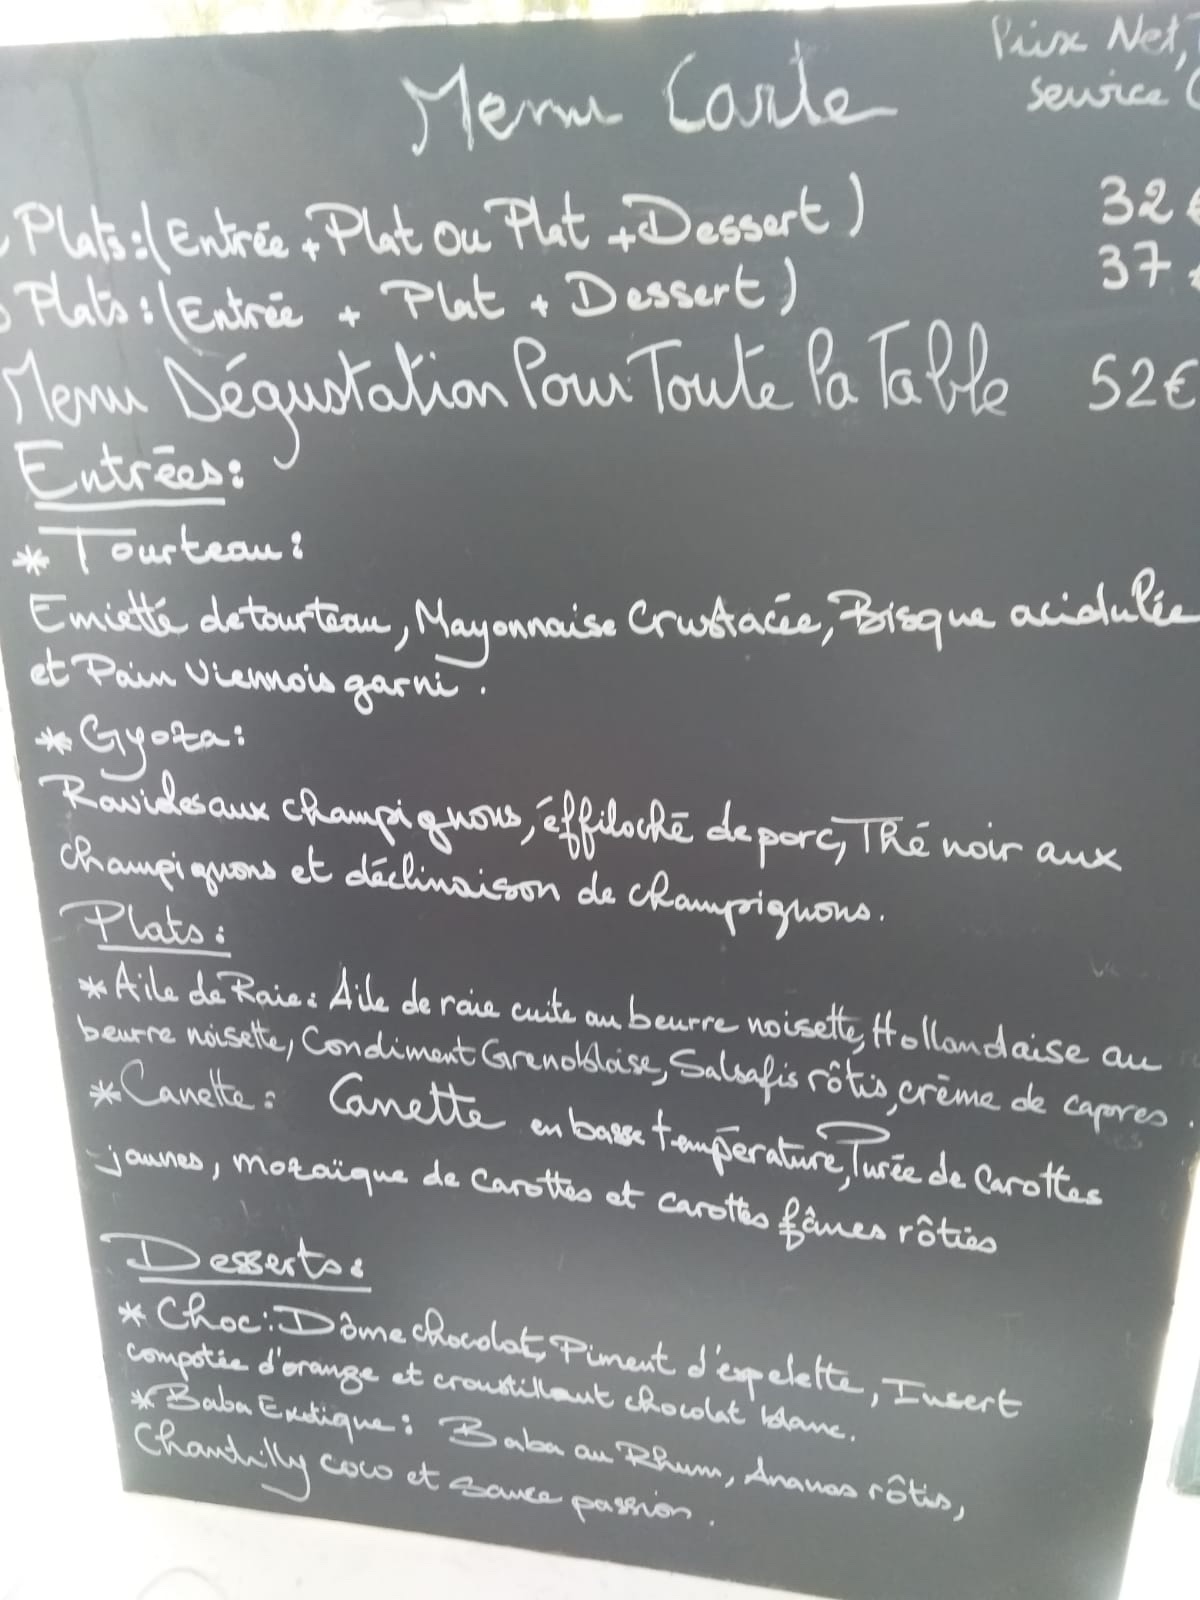 Prix Net,
service
Menu Carte
Plats:(Entrée + Plat ou Plat + Dessert) 32€
Plats:(Entrée + Plat + Dessert) 37€
Menu Dégustation Pour Toute la Table 52€
Entrées:
* Tourteau:
Emietté de tourteau, Mayonnaise Crustacée, Bisque acidulée
et Pain Viennois garni.
* Gyoza:
Ravioles aux champignons, éffiloché de porc, Thé noir aux
champignons et déclinaison de champignons.
Plats:
* Aile de Raie: Aile de raie cuite au beurre noisette, Hollandaise au
beurre noisette, Condiment Grenobloise, Salsafis rôtis, crème de capres.
* Canette: Canette en basse température, Purée de Carottes
jaunes, mozaïque de Carottes et carottes fânes rôties
Desserts:
* Choc: Dôme chocolat, Piment d'espelette, Insert
compotée d'orange et croustillant chocolat blanc.
* Baba Exotique: Baba au Rhum, Ananas rôtis,
Chantilly coco et sauce passion.